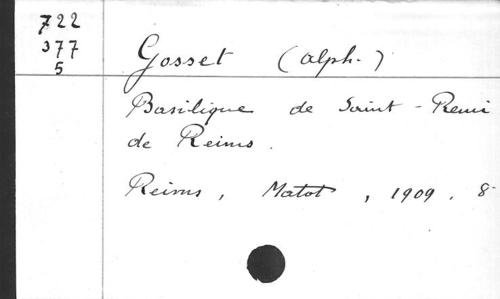 722
377
5
Gosset (Alph.)
Basilique de Saint-Remi
de Reims.
Reims, Matot, 1909. 8